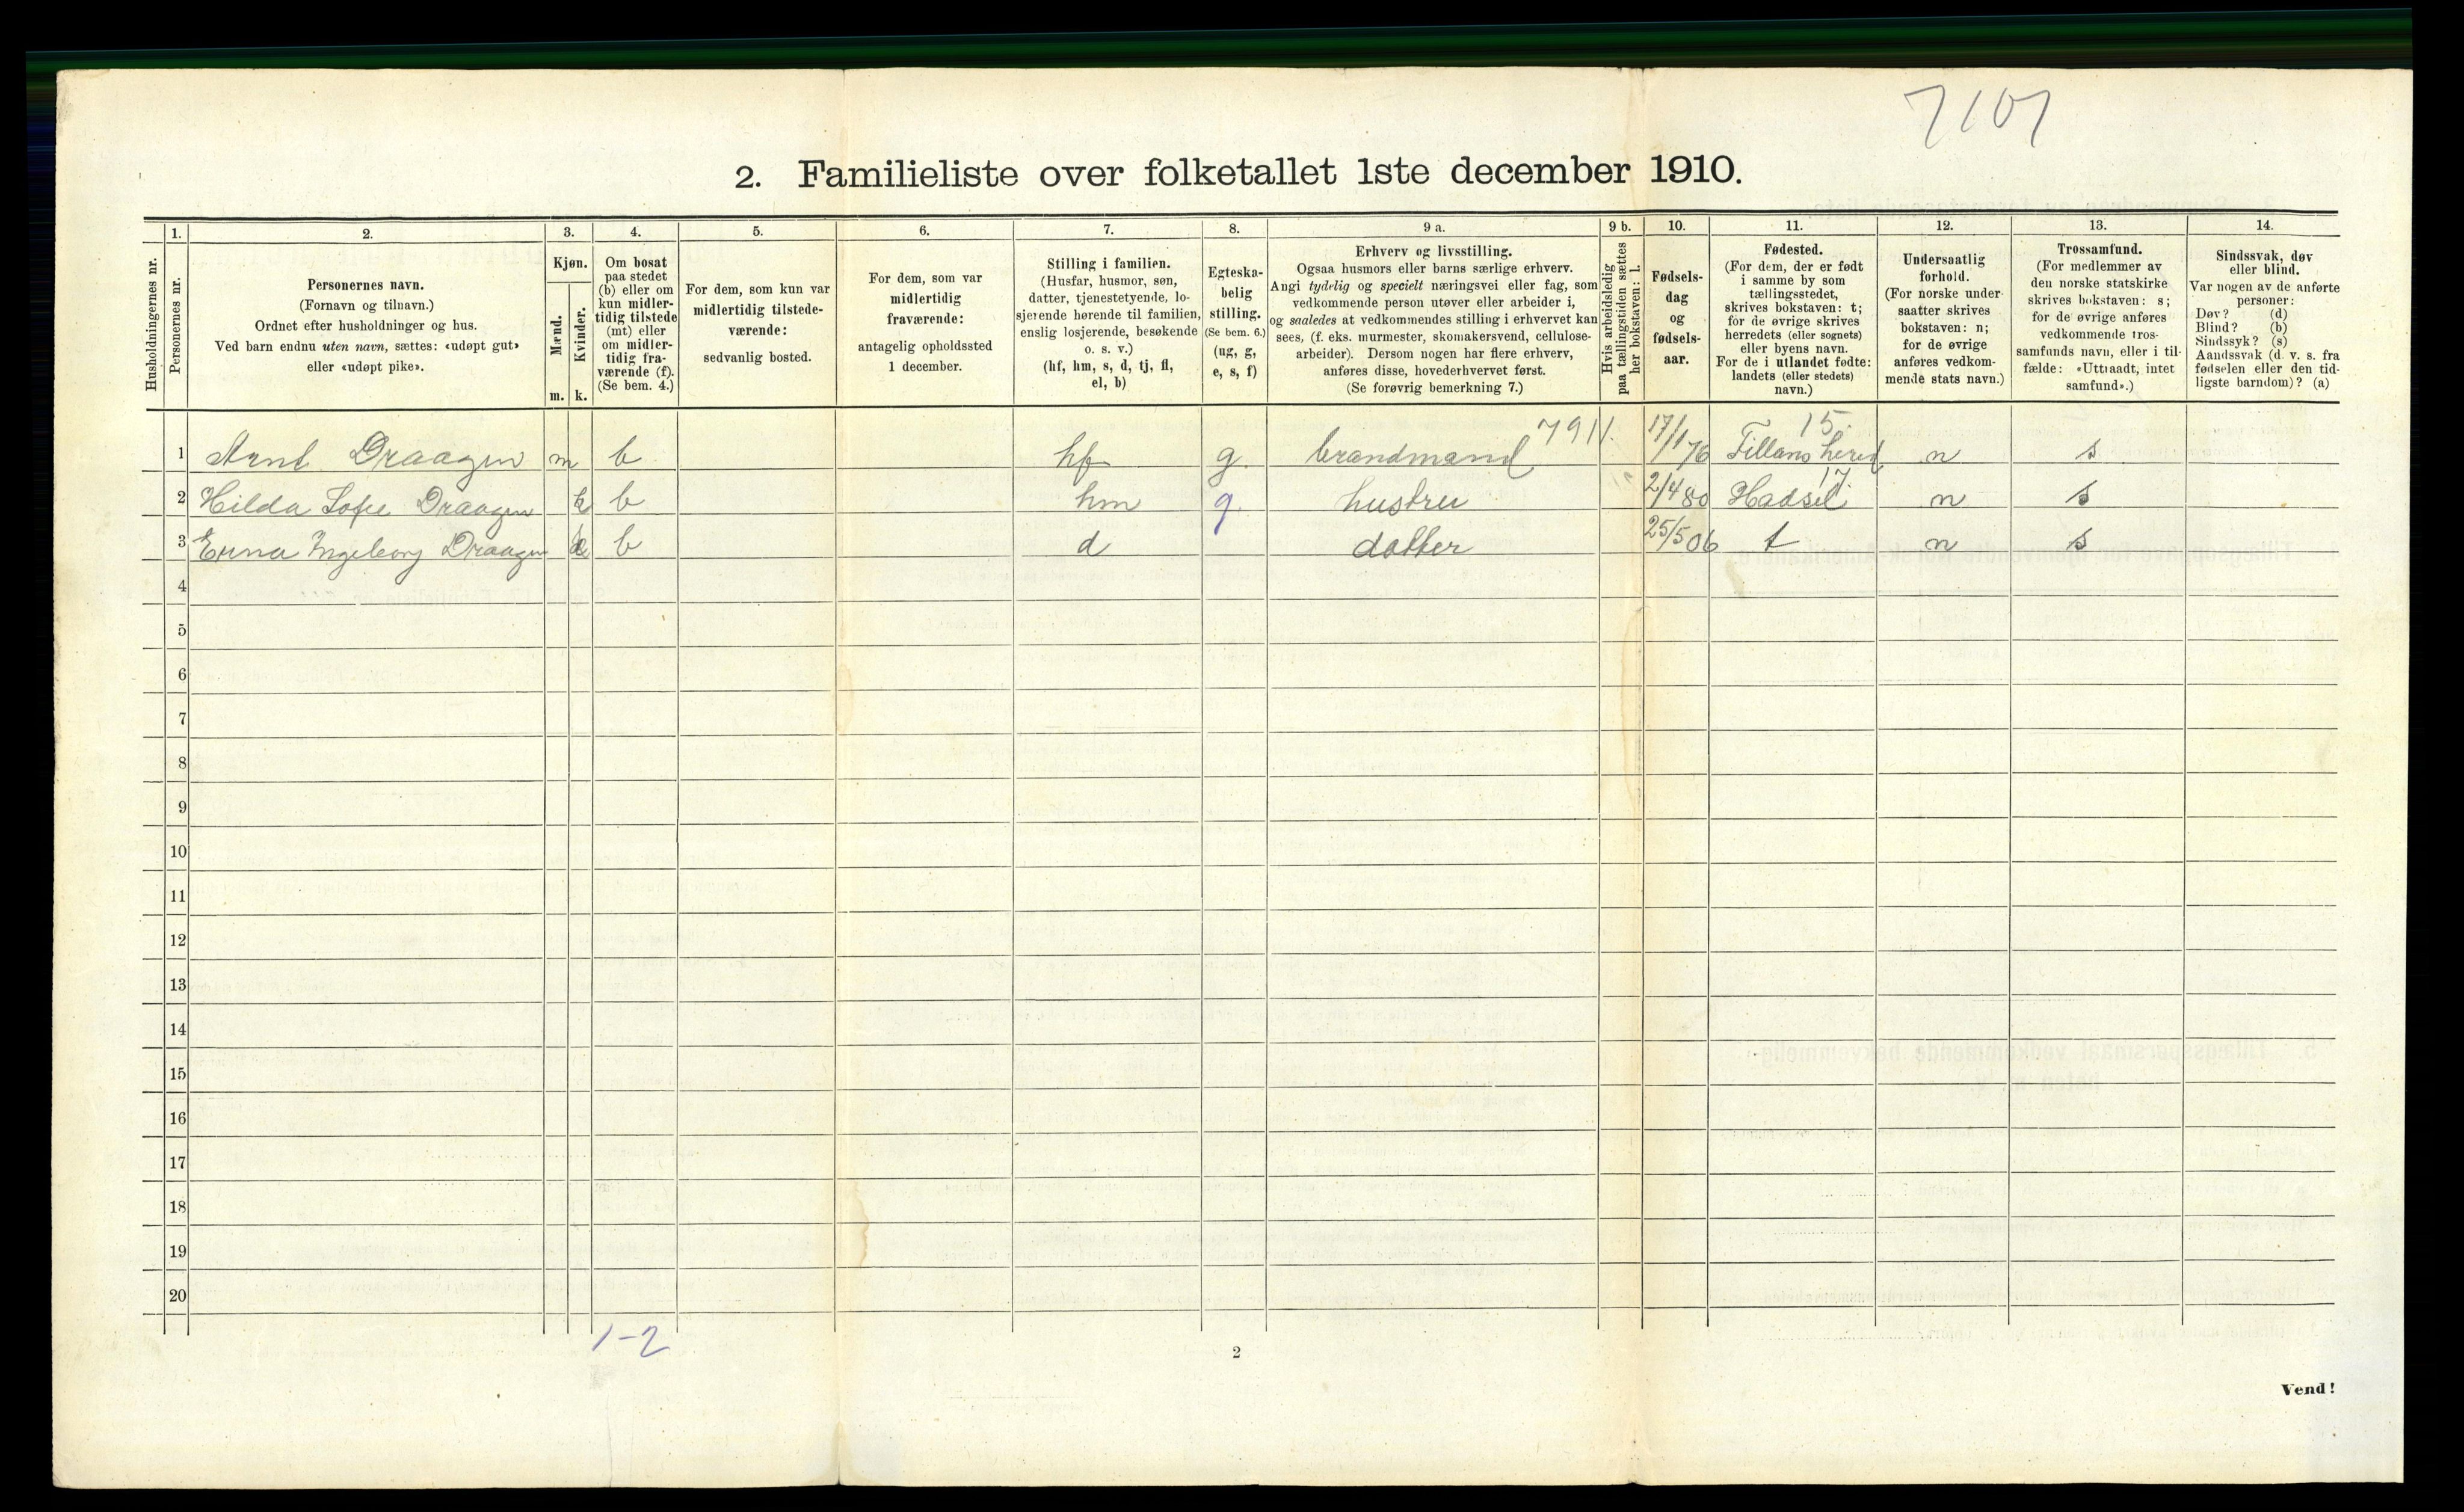 7107
2. Familieliste over folketallet 1ste december 1910.
Husholdningernes nr.
1.
Personernes nr.
2.
Personernes navn.
(Fornavn og tilnavn.)
Ordnet efter husholdninger og hus.
Ved barn endnu uten navn, sættes: «udøpt gut»
eller «udøpt pike».
3.
Kjøn.
Mænd.
Kvinder.
m. k.
4.
Om bosat
paa stedet
(b) eller om
kun midler-
tidig tilstede
(mt) eller
om midler-
tidig fra-
værende (f).
(Se bem. 4.)
5.
For dem, som kun var
midlertidig tilstede-
værende:
sedvanlig bosted.
6.
For dem, som var
midlertidig
fraværende:
antagelig opholdssted
1 december.
7.
Stilling i familien.
(Husfar, husmor, søn,
datter, tjenestetyende, lo-
sjerende hørende til familien,
enslig losjerende, besøkende
o. s. v.)
(hf, hm, s, d, tj, fl,
el, b)
8.
Egteska-
belig
stilling.
(Se bem. 6.)
(ug, g,
e, s, f)
9 a.
Erhverv og livsstilling.
Ogsaa husmors eller barns særlige erhverv.
Angi tydelig og specielt næringsvei eller fag, som
vedkommende person utøver eller arbeider i,
og saaledes at vedkommendes stilling i erhvervet kan
sees, (f. eks. murmester, skomakersvend, cellulose-
arbeider). Dersom nogen har flere erhverv,
anføres disse, hovederhvervet først.
(Se forøvrig bemerkning 7.)
9 b.
Hvis arbeidsledig
paa tællingstiden sættes
her bokstaven: l.
10.
Fødsels-
dag
og
fødsels-
aar.
11.
Fødested.
(For dem, der er født
i samme by som
tællingsstedet,
skrives bokstaven: t;
for de øvrige skrives
herredets (eller sognets)
eller byens navn.
For de i utlandet fødte:
landets (eller stedets)
navn.)
12.
Undersaatlig
forhold.
(For norske under-
saatter skrives
bokstaven: n;
for de øvrige
anføres vedkom-
mende stats navn.)
13.
Trossamfund.
(For medlemmer av
den norske statskirke
skrives bokstaven: s;
for de øvrige anføres
vedkommende tros-
samfunds navn, eller i til-
fælde: «Uttraadt, intet
samfund».)
14.
Sindssvak, døv
eller blind.
Var nogen av de anførte
personer:
Døv? (d)
Blind? (b)
Sindssyk? (s)
Aandssvak (d. v. s. fra
fødselen eller den tid-
ligste barndom)? (a)
7911. 15.
1 Arnt Draagen m b hf g. brandmand 17/1 76 Fillans herred n s
17.
2 Hilda Sofie Draagen k b hm g. hustru 2/4 80 Hadsel n s
3 Erna Ingeborg Draagen k b d datter 25/5 06 t n s
4
5
6
7
8
9
10
11
12
13
14
15
16
17
18
19
20
1-2
2
Vend!